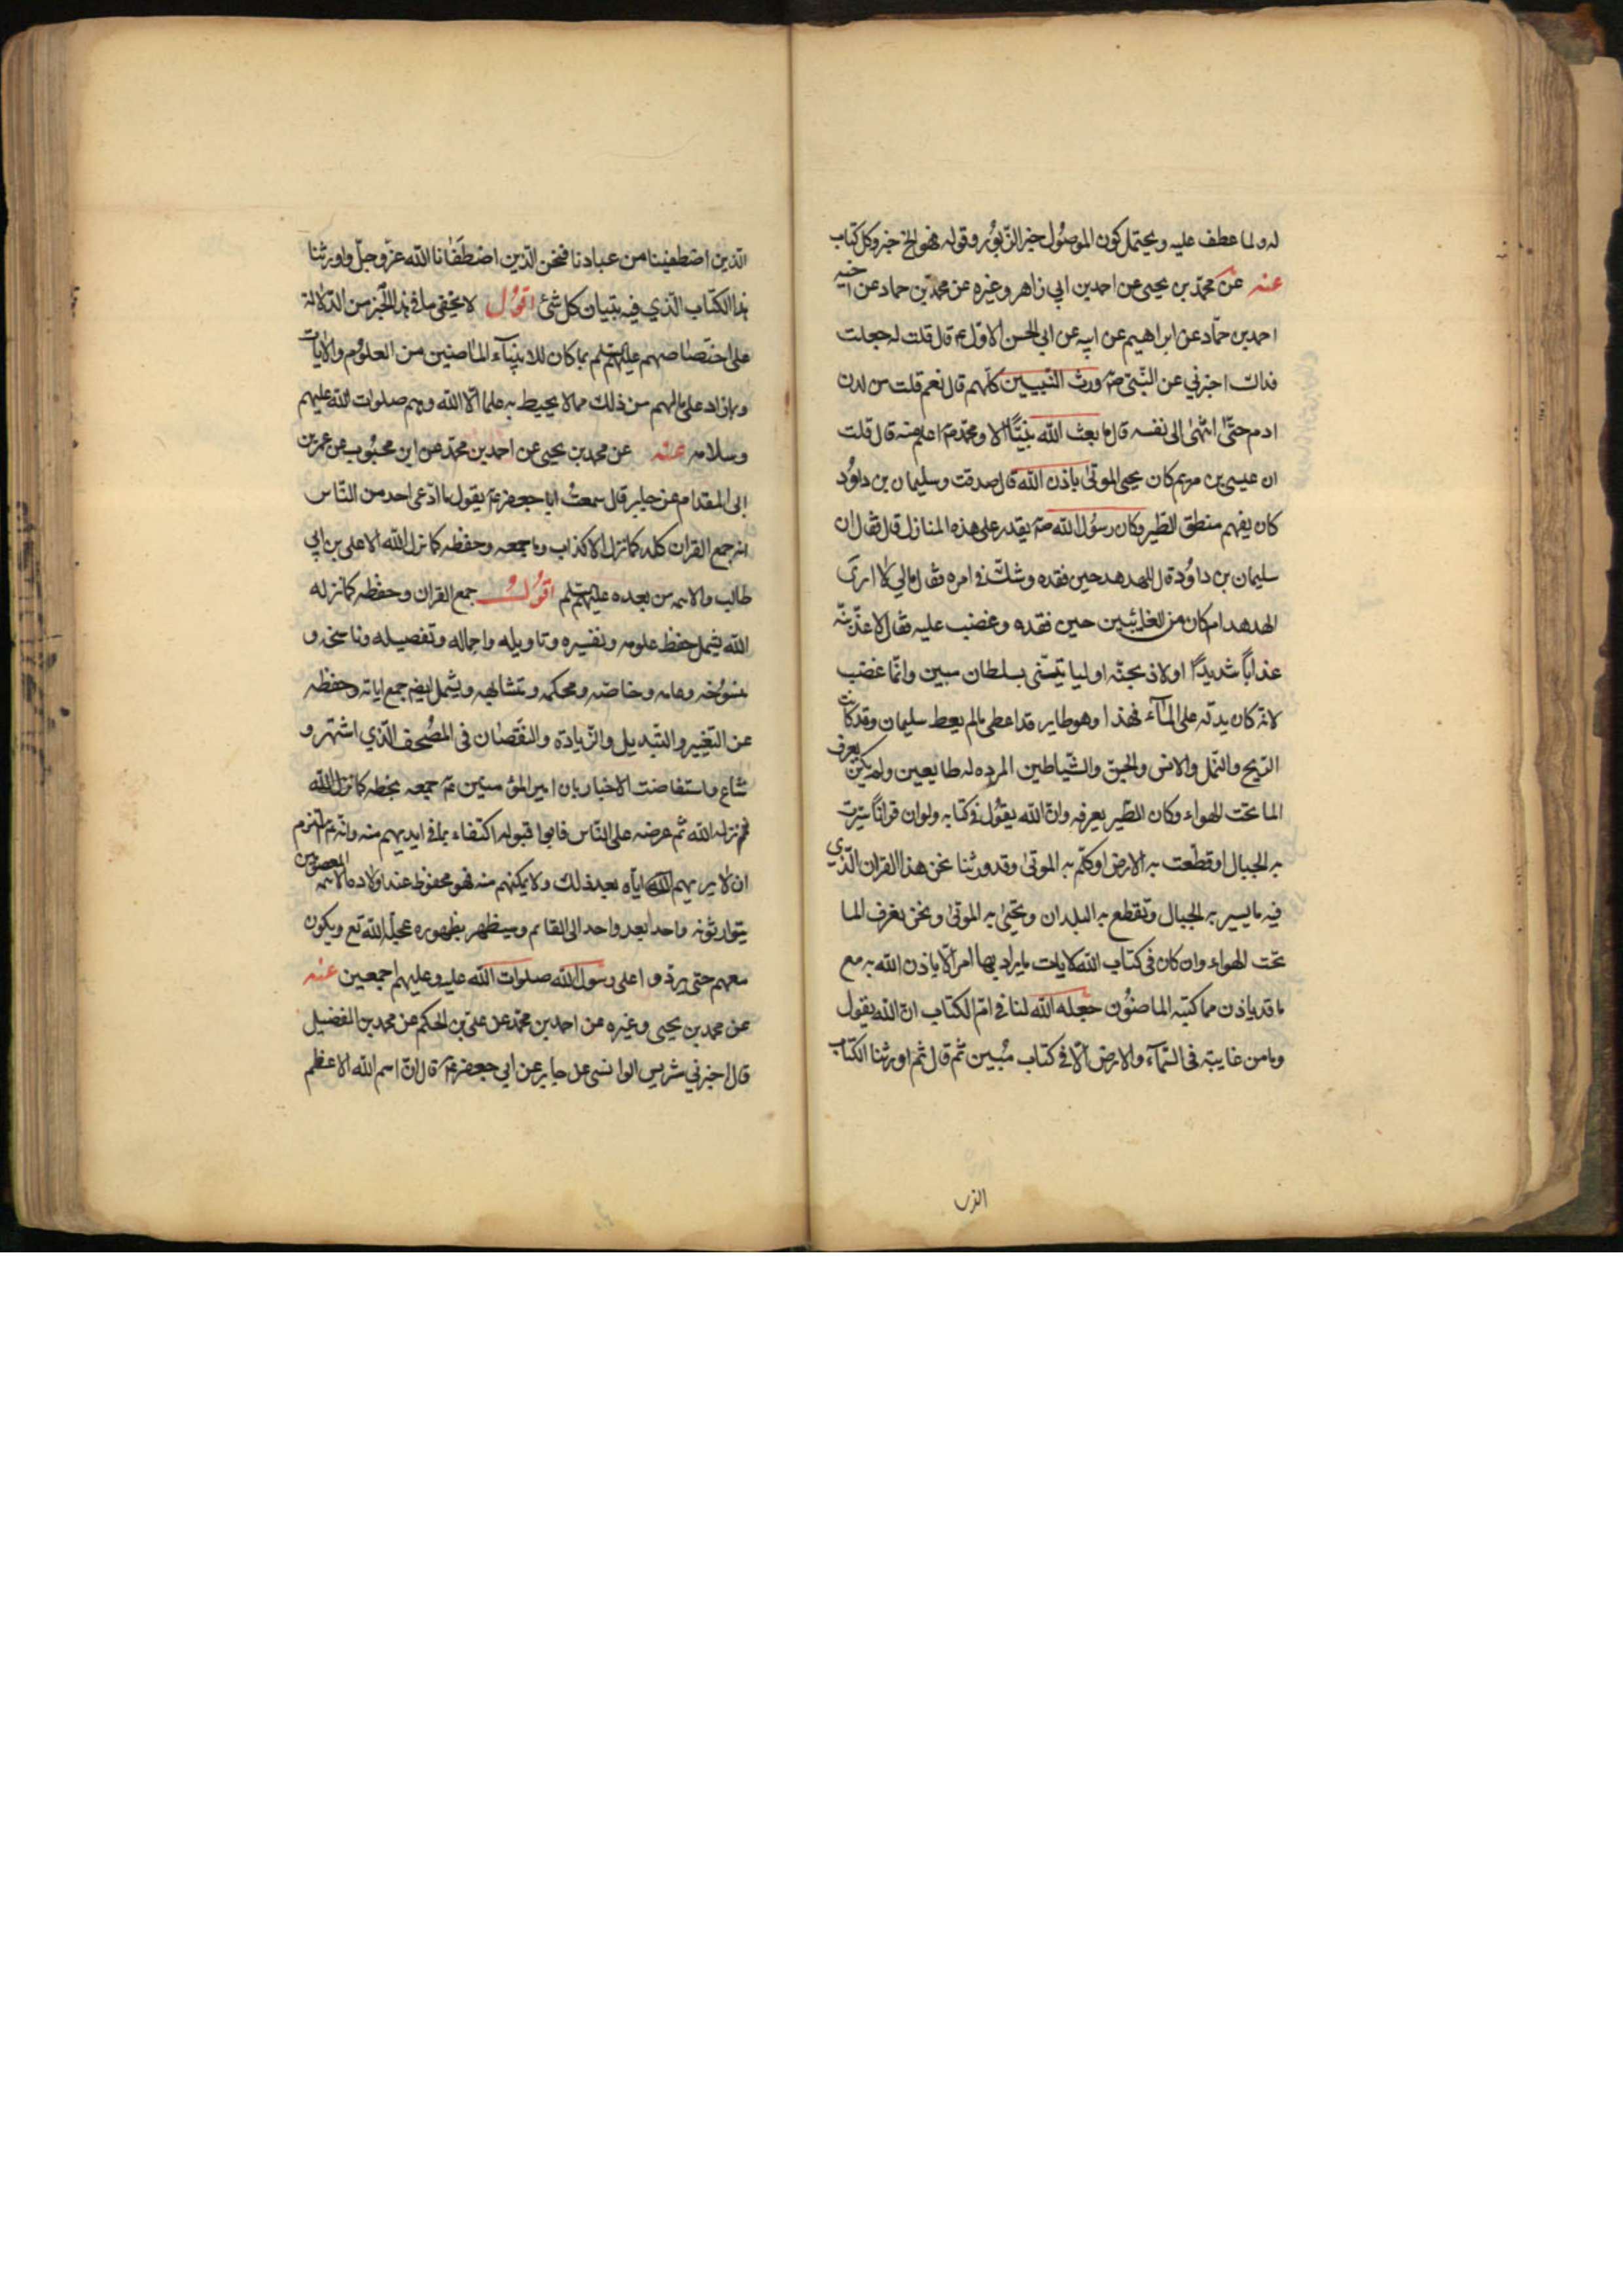 له ولما عطف عليه ويحتمل كون الموصُول خبر الزّبُور وقوله فهو الخ خبر وكل كتاب
عنه عن محمّد بن يحيى عن احمد بن ابي زاهر وغيره عن محمّد بن حماد عن اخيه
احمد بن حمّاد عن ابراهيم عن ابيه عن ابي الحسن الاوّل عم قال قلت له جعلت
فداك اخبرني عن النّبيّ صم ورث النّبيين كلّهم قال نعم قلت من لدن
ادم حتّى انتهى الى نفسه قال ما بعث الله نبيّا الا ومحمّد صم اعلم منه قال قلت
ان عيسى بن مريم كان يحيى الموتى باذن الله قال صدقت وسليمان بن داوُد
كان يفهم منطق الطّير وكان رسُول الله صم يقدر على هذه المنازل قال فقال ان
سليمان بن داوُد قال للهدهد حين فقده وشكّ في امره فقال مالي لا ارى
الهدهد ام كان من الغائبين حين فقده وغضب عليه فقال لاعذّبنّه
عذاباً شديدًا اولاذبحنّه اوليا تيّنى بسلطان مبين وانّما غضب
لانّه كان يدلّه على المآء فهذا وهو طاير قد اعطى مالم يعط سليمان وقد كانت
الرّيح والنّمل والانس والجنّ والشّياطين المرده له طايعين ولم يكن يعرف
الما تحت الهواء وكان الطّير يعرفه وانّ الله يقوُل في كتابه ولو ان قراناً سيّرت
به الجبال او قطّعت به الارض او كلّم به الموتى وقد ورثنا نحن هذا القران الّذي
فيه ما يسير به الجبال وتقطع به البلدان وتحيى به الموتى ونحن نعرف الما
تحت الهواء وان كان في كتاب الله لايات ما يراد بها امر الّا ياذن الله به مع
ما قد ياذن مما كتبه الماضُون جعله الله لنا في امّ الكتاب انّ الله يقول
وما من غايبة في السّمآء والارض الّا في كتاب مُبين ثمّ قال ثم اورثنا الكتاب
الذين
الّذين اصطفينا من عبادنا فنحن الّذين اصطفانا الله عزّ وجلّ واورثنا
هذا الكتاب الّذي فيه تبيان كل شئ اقوُل لا يخفى ما في هذا الخبر من الدّلالة
على اختصاصهم عليهم السلم بما كان للانبيآء الماضين من العلوُم والايات
وما زاد على مالهم من ذلك مما لا يحيط به علما الّا الله وهم صلوات الله عليهم
وسلامه عنه عن محمد بن يحيى عن احمد بن محمّد عن ابن محبُوب عن عمر بن
ابى المقدام عن جابر قال سمعتُ ابا جعفر عم يقول ما ادّعى احد من النّاس
انه جمع القران كله كما نزل الا كذاب وما جمعه وحفظه كما نزل الله الا على بن ابي
طالب والائمه من بعده عليهم السلم اقوُل جمع القران وحفظه كما نزله
الله يشمل حفظ علومه وتفسيره وتاويله واجماله وتفصيله وناسخه و
منسوُخه وعامه وخاصّه ومحكمه ومتشابهه ويشمل ايضم جمع اياته وحفظه
عن التّغيير والتبديل والزّيادة والنّقصان في المصُحف الّذي اشتهر و
شاع واستفاضت الاخبار بان امير المؤمنين عم جمعه بخطه كما نزل الله
نزله الله ثم عرضه على النّاس فابوا قبوله اكتفاء بما في ايديهم منه وانّه عم التزم
ان لا يريهم اياه بعد ذلك ولا يمكنهم منه فهو محفوظ عند اولاده الائمه المعصومين
يتوارثونه واحدا بعد واحد الى القائم وسيظهر بظهوره عجل الله تع ويكون
معهم حتى يردّوا على رسول الله صلوات الله عليه وعليهم اجمعين عنه
عن محمد بن يحيى وغيره عن احمد بن محمّد عن علىّ بن الحكم عن محمد بن الفضيل
قال اخبرني شريس الوابشى عن جابر عن ابي جعفر عم قال انّ اسم الله الاعظم